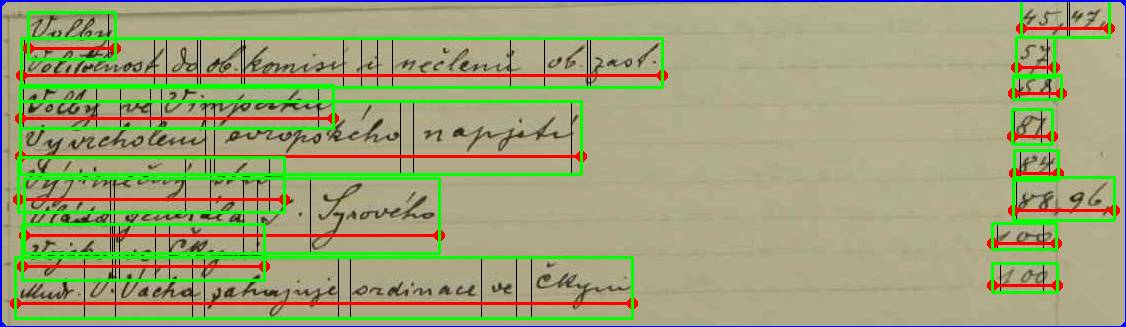 Volby 45, 47,
Volitelnost do ob. komisí i nečlenů ob. zast. 57,
Volby ve Vimperku 58
Vyvrcholení evropského napjetí 81
Výjimečný stav 84
Vláda generála J. Syrového 88, 96,
Vojsko ve Čkyni 100
Mudr. V. Vácha zahajuje ordinace ve Čkyni 100